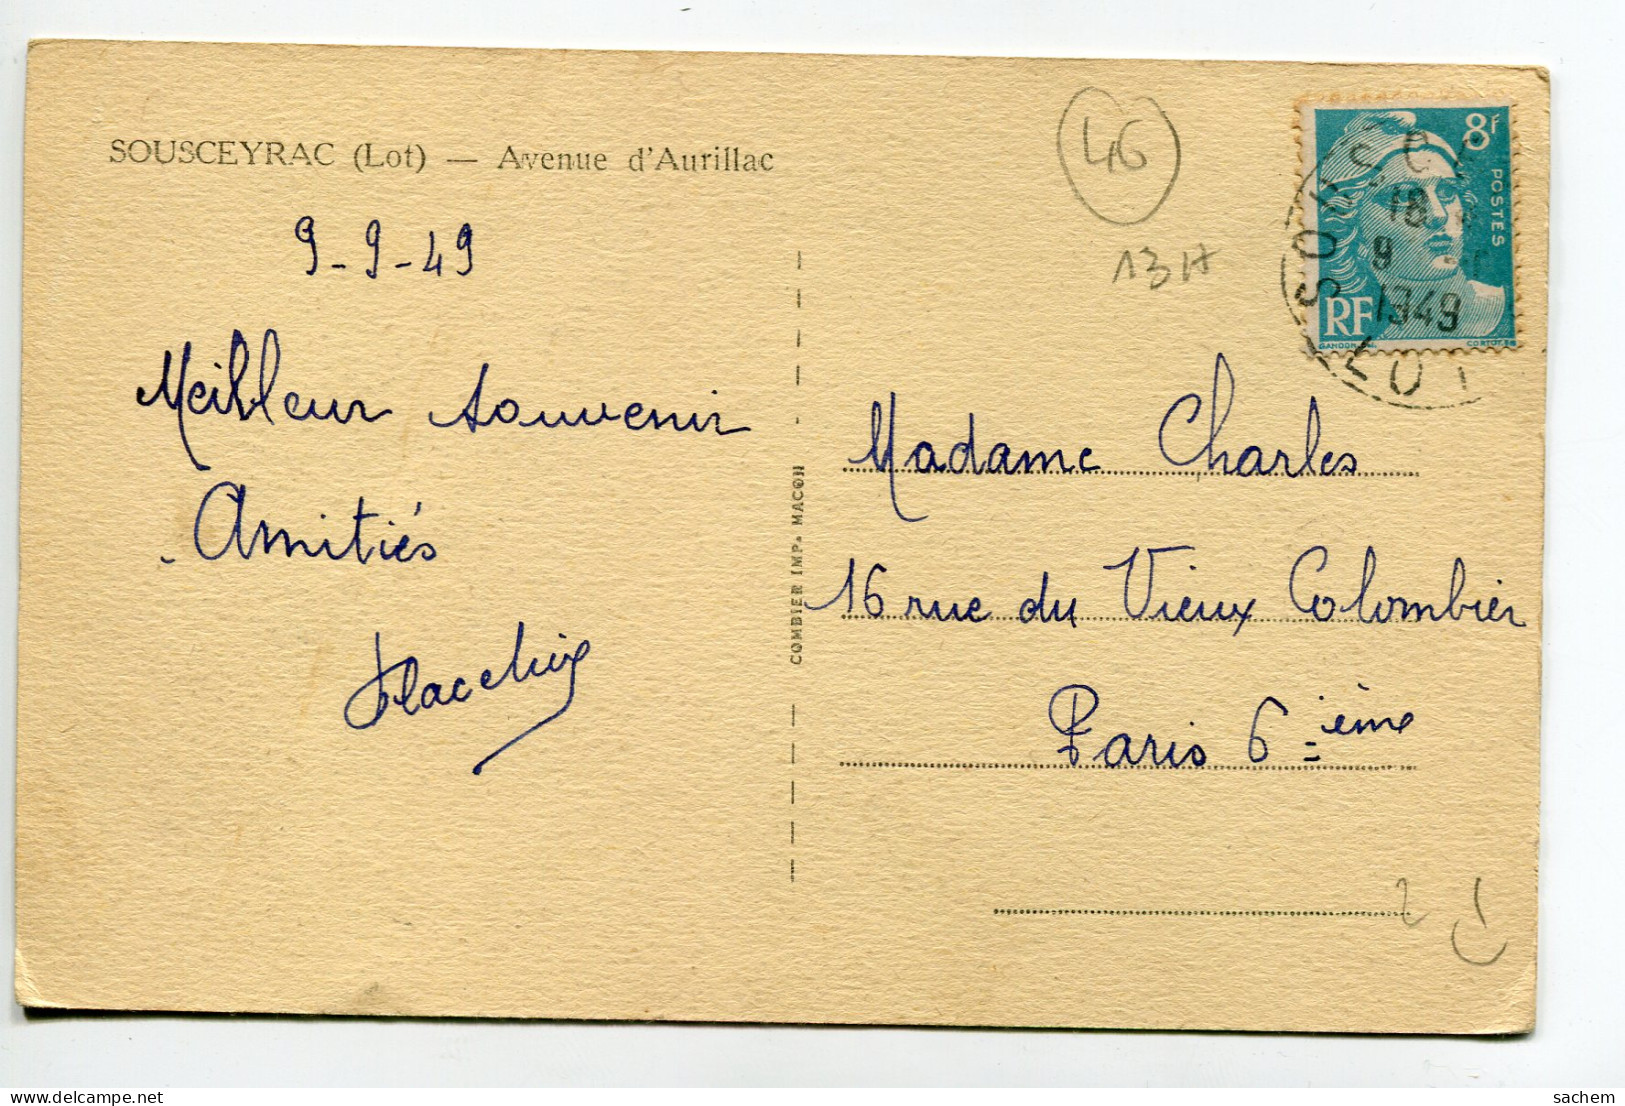 SOUSCEYRAC (Lot) — Avenue d'Aurillac
9-9-49
Meilleur souvenir
Amitiés
COMBIER IMP. MACON
46
13H
8f
POSTES
RF
SOUSCEY
18
9
1949
LOT
Madame Charles
16 rue du Vieux Colombier
Paris 6ième
sachem